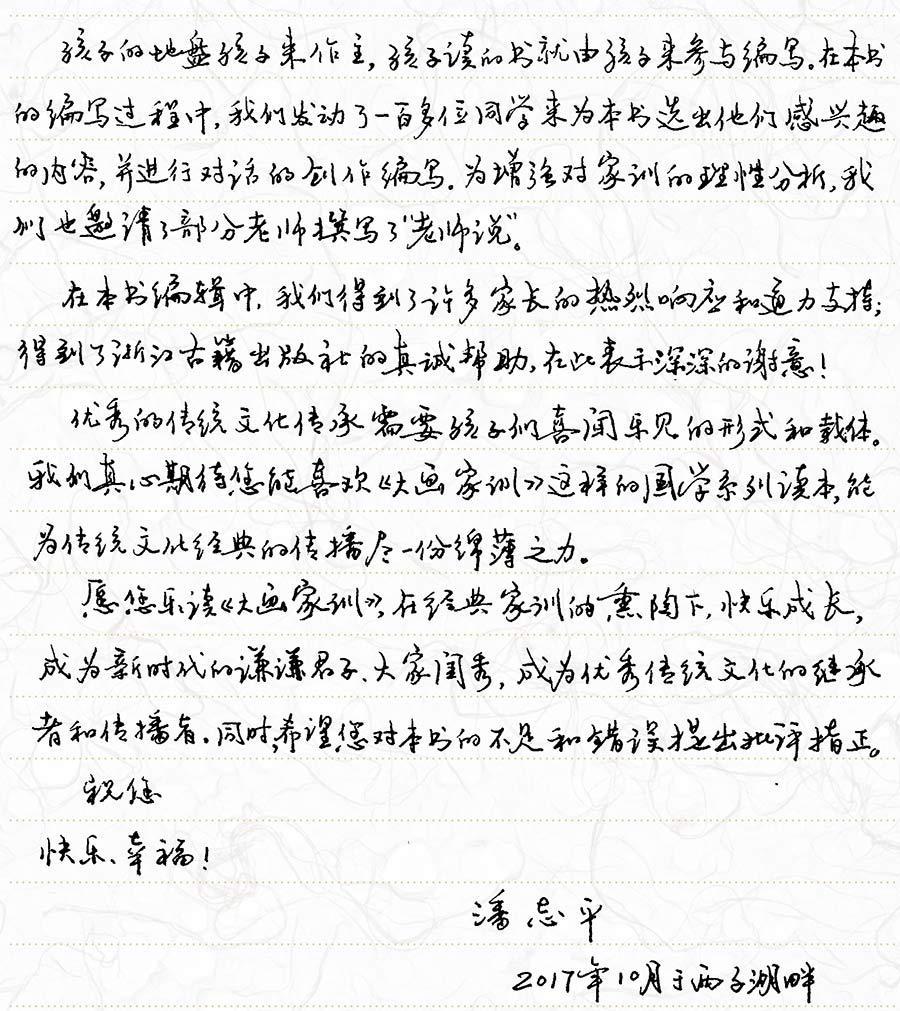 孩子的地盘孩子来作主，孩子读的书就由孩子来参与编写。在本书
的编写过程中，我们发动了一百多位同学来为本书选出他们感兴趣
的内容，并进行对话的创作编写。为增强对家训的理性分析，我
们也邀请了部分老师撰写了“老师说”。
在本书编辑中，我们得到了许多家长的热烈响应和通力支持；
得到了浙江古籍出版社的真诚帮助，在此表示深深的谢意！
优秀的传统文化传承需要孩子们喜闻乐见的形式和载体。
我们真心期待您能喜欢《大画家训》这样的国学系列读本，能
为传统文化经典的传播尽一份绵薄之力。
愿您乐读《大画家训》，在经典家训的熏陶下，快乐成长，
成为新时代的谦谦君子、大家闺秀，成为优秀传统文化的继承
者和传播者。同时，希望您对本书的不足和错误提出批评指正。
祝您
快乐、幸福！
潘志平
2017年10月于西子湖畔